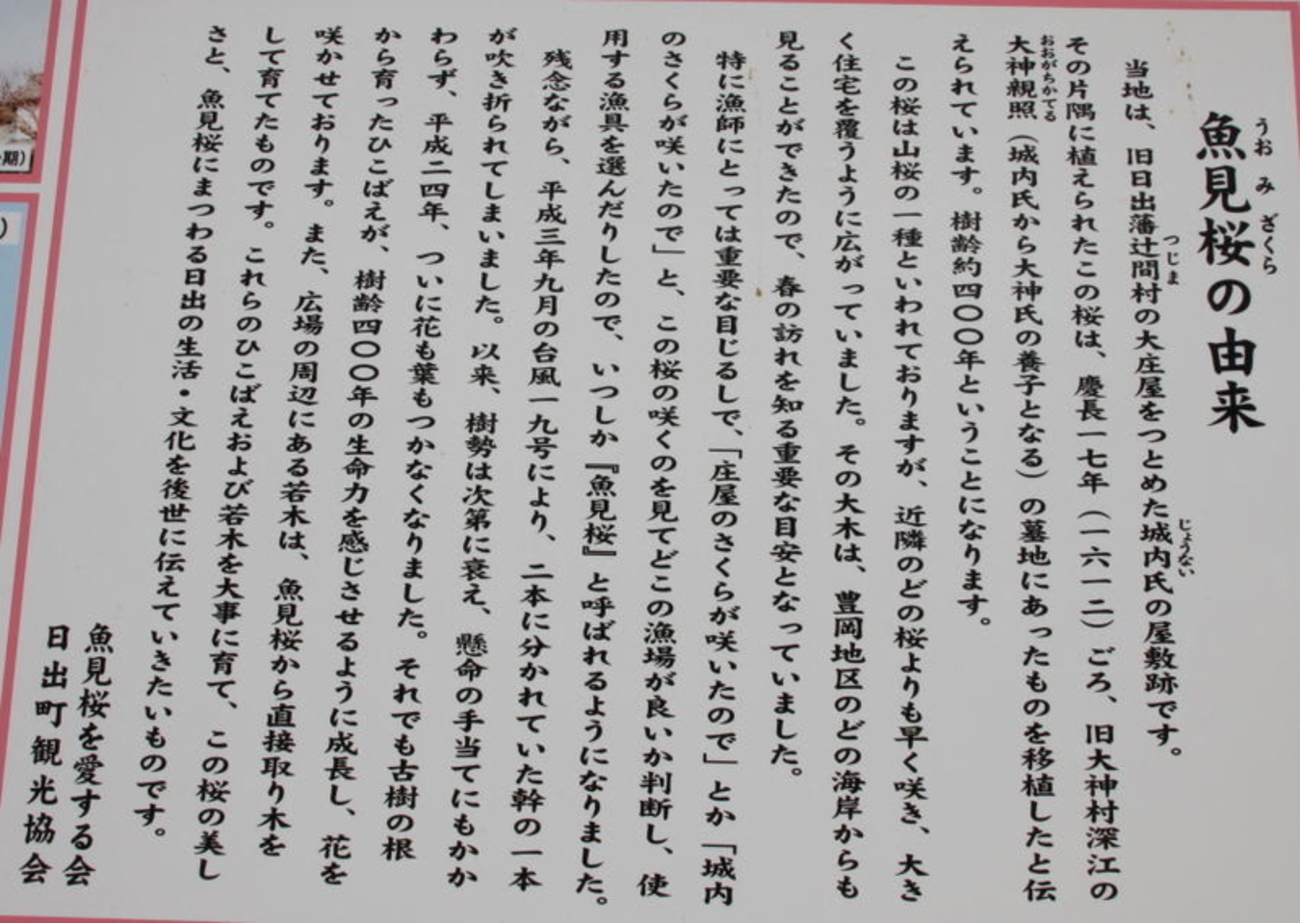 魚見桜の由来
うおみざくら
当地は、旧日出藩辻間村の大庄屋をつとめた城内氏の屋敷跡です。
つじま
じょうない
その片隅に植えられたこの桜は、慶長一七年(一六一二)ごろ、旧大神村深江の
大神親照(城内氏から大神氏の養子となる)の墓地にあったものを移植したと伝
おおがちかてる
えられています。樹齢約四〇〇年ということになります。
この桜は山桜の一種といわれておりますが、近隣のどの桜よりも早く咲き、大き
く住宅を覆うように広がっていました。その大木は、豊岡地区のどの海岸からも
見ることができたので、春の訪れを知る重要な目安となっていました。
特に漁師にとっては重要な目じるしで、「庄屋のさくらが咲いたので」とか「城内
のさくらが咲いたので」と、この桜の咲くのを見てどこの漁場が良いか判断し、使
用する漁具を選んだりしたので、いつしか『魚見桜』と呼ばれるようになりました。
残念ながら、平成三年九月の台風一九号により、二本に分かれていた幹の一本
が吹き折られてしまいました。以来、樹勢は次第に衰え、懸命の手当てにもかか
わらず、平成二四年、ついに花も葉もつかなくなりました。それでも古樹の根
から育ったひこばえが、樹齢四〇〇年の生命力を感じさせるように成長し、花を
咲かせております。また、広場の周辺にある若木は、魚見桜から直接取り木を
して育てたものです。これらのひこばえおよび若木を大事に育て、この桜の美し
さと、魚見桜にまつわる日出の生活・文化を後世に伝えていきたいものです。
魚見桜を愛する会
日出町観光協会
期)
)